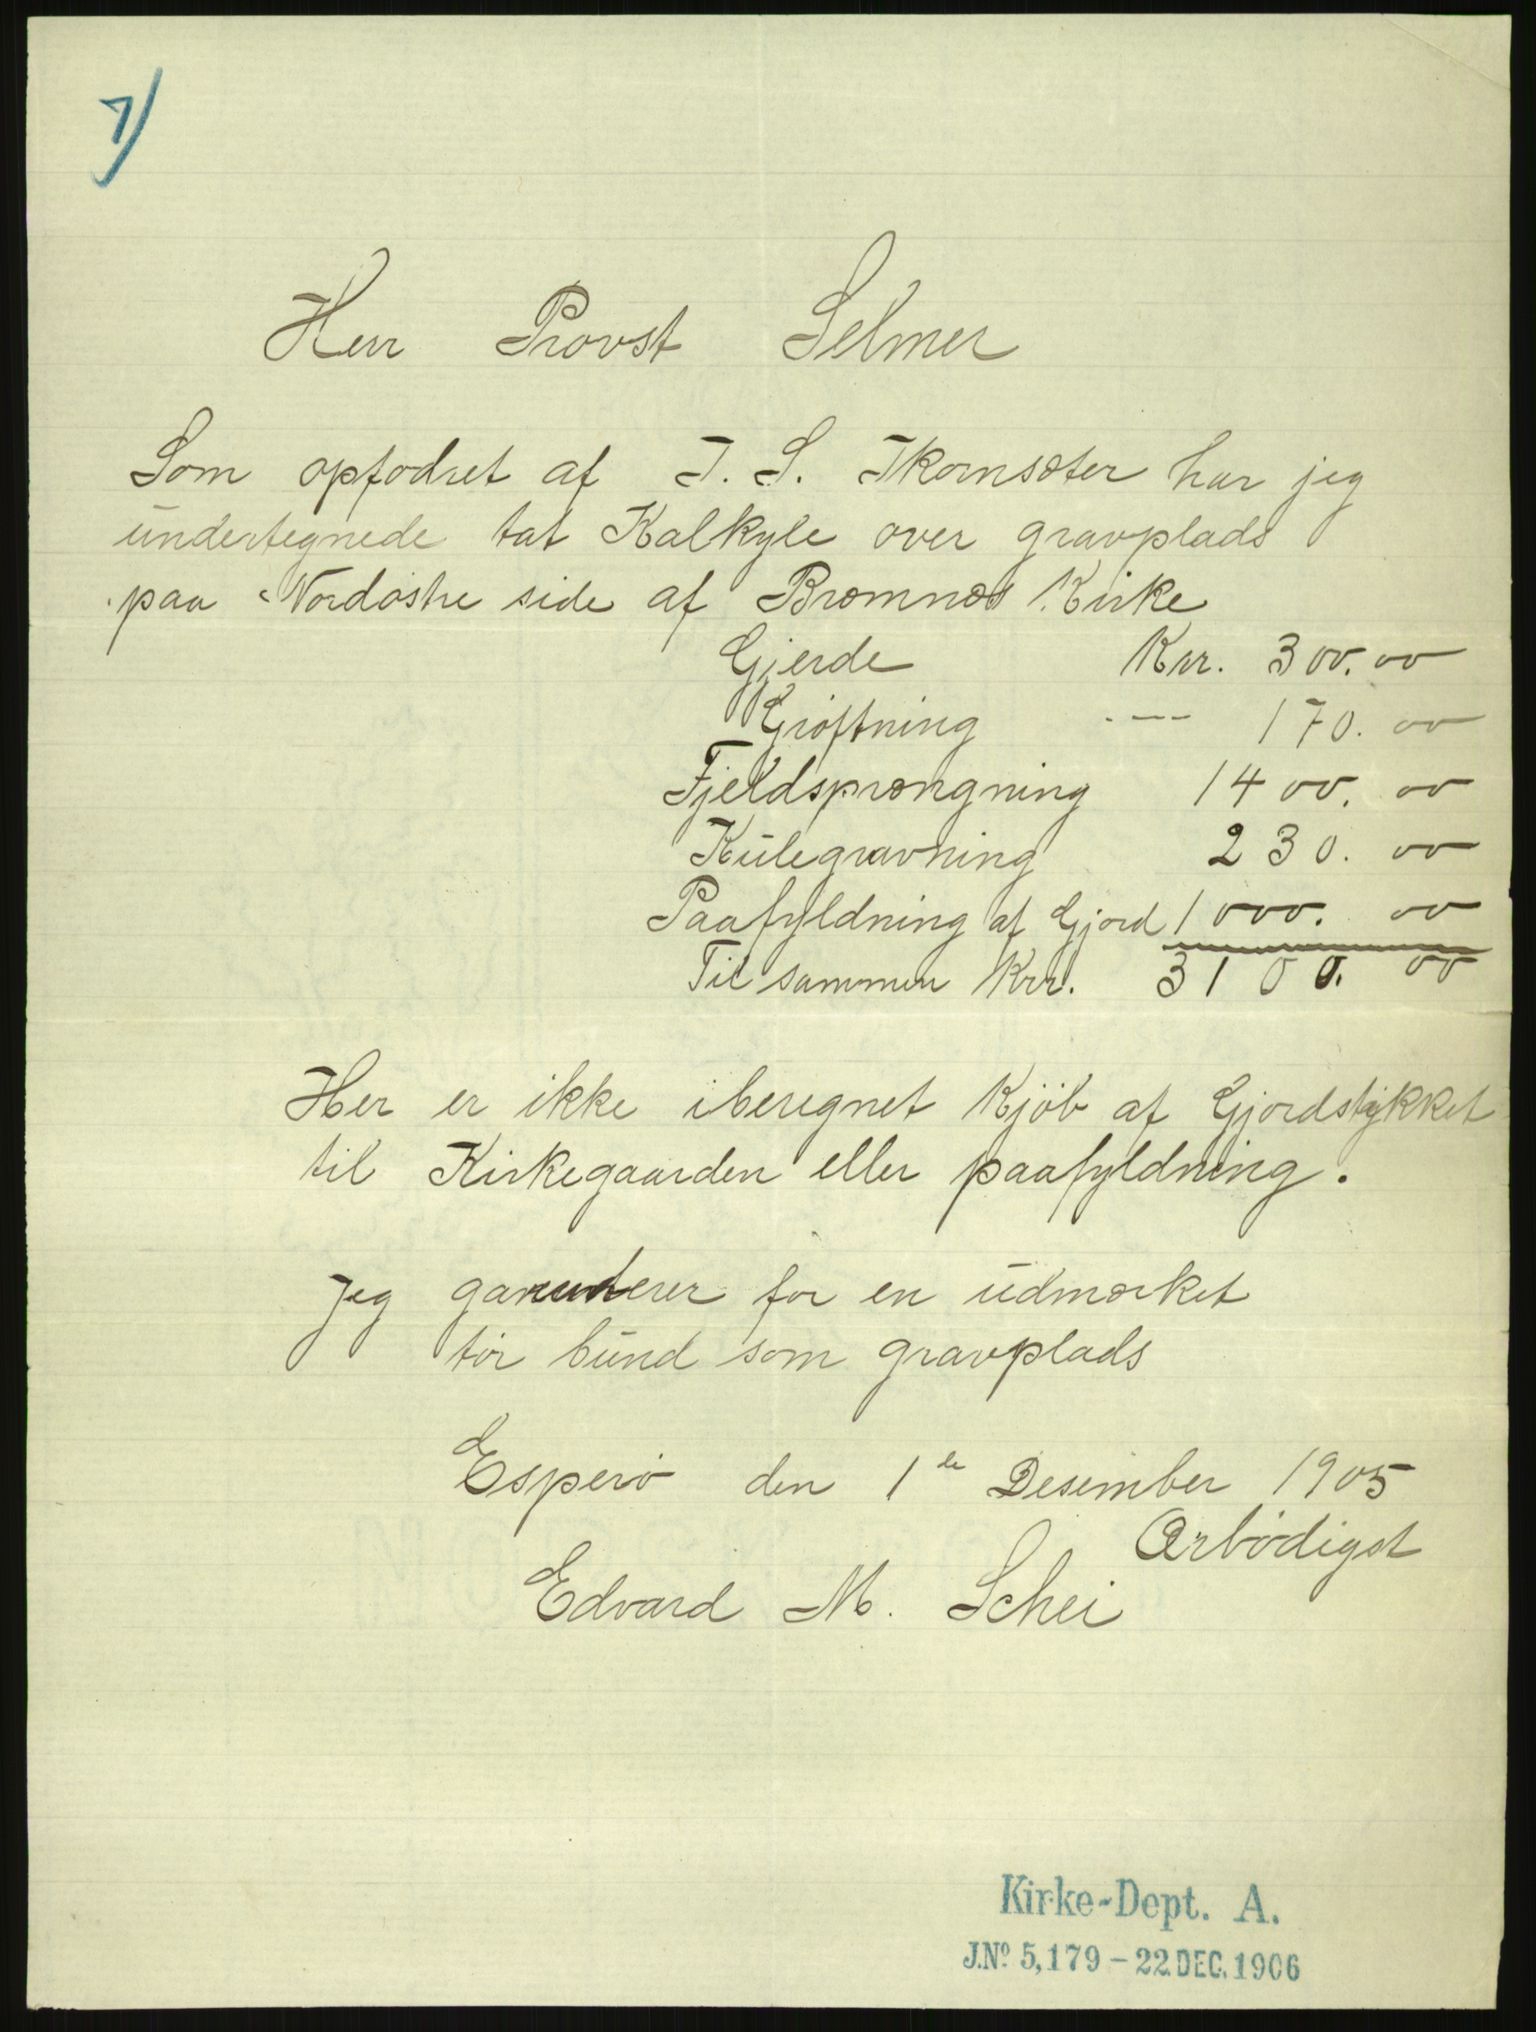 7)
Herr Provst Selmer
Som opfodret af J. S. Skornsæter har jeg
undertegnede tat Kalkyle over gravplads
paa Nordøstre side af Bremnæs Kirke
Gjerde Krr. 300.00
Grøftning --- 170.00
Fjeldsprængning 1400.00
Kulegravning 230.00
Paafyldning af Gjord 1000.00
Til sammen Krr. 3100.00
Her er ikke iberegnet Kjöb af Gjordstykket
til Kirkegaarden eller paafyldning.
Jeg garunterer for en udmærket
tör bund som gravplads
Esperö den 1te Desember 1905
Ærbödigst
Edvard M. Schei
Kirke-Dept. A.
J.Nº 5,179 - 22.DEC.1906